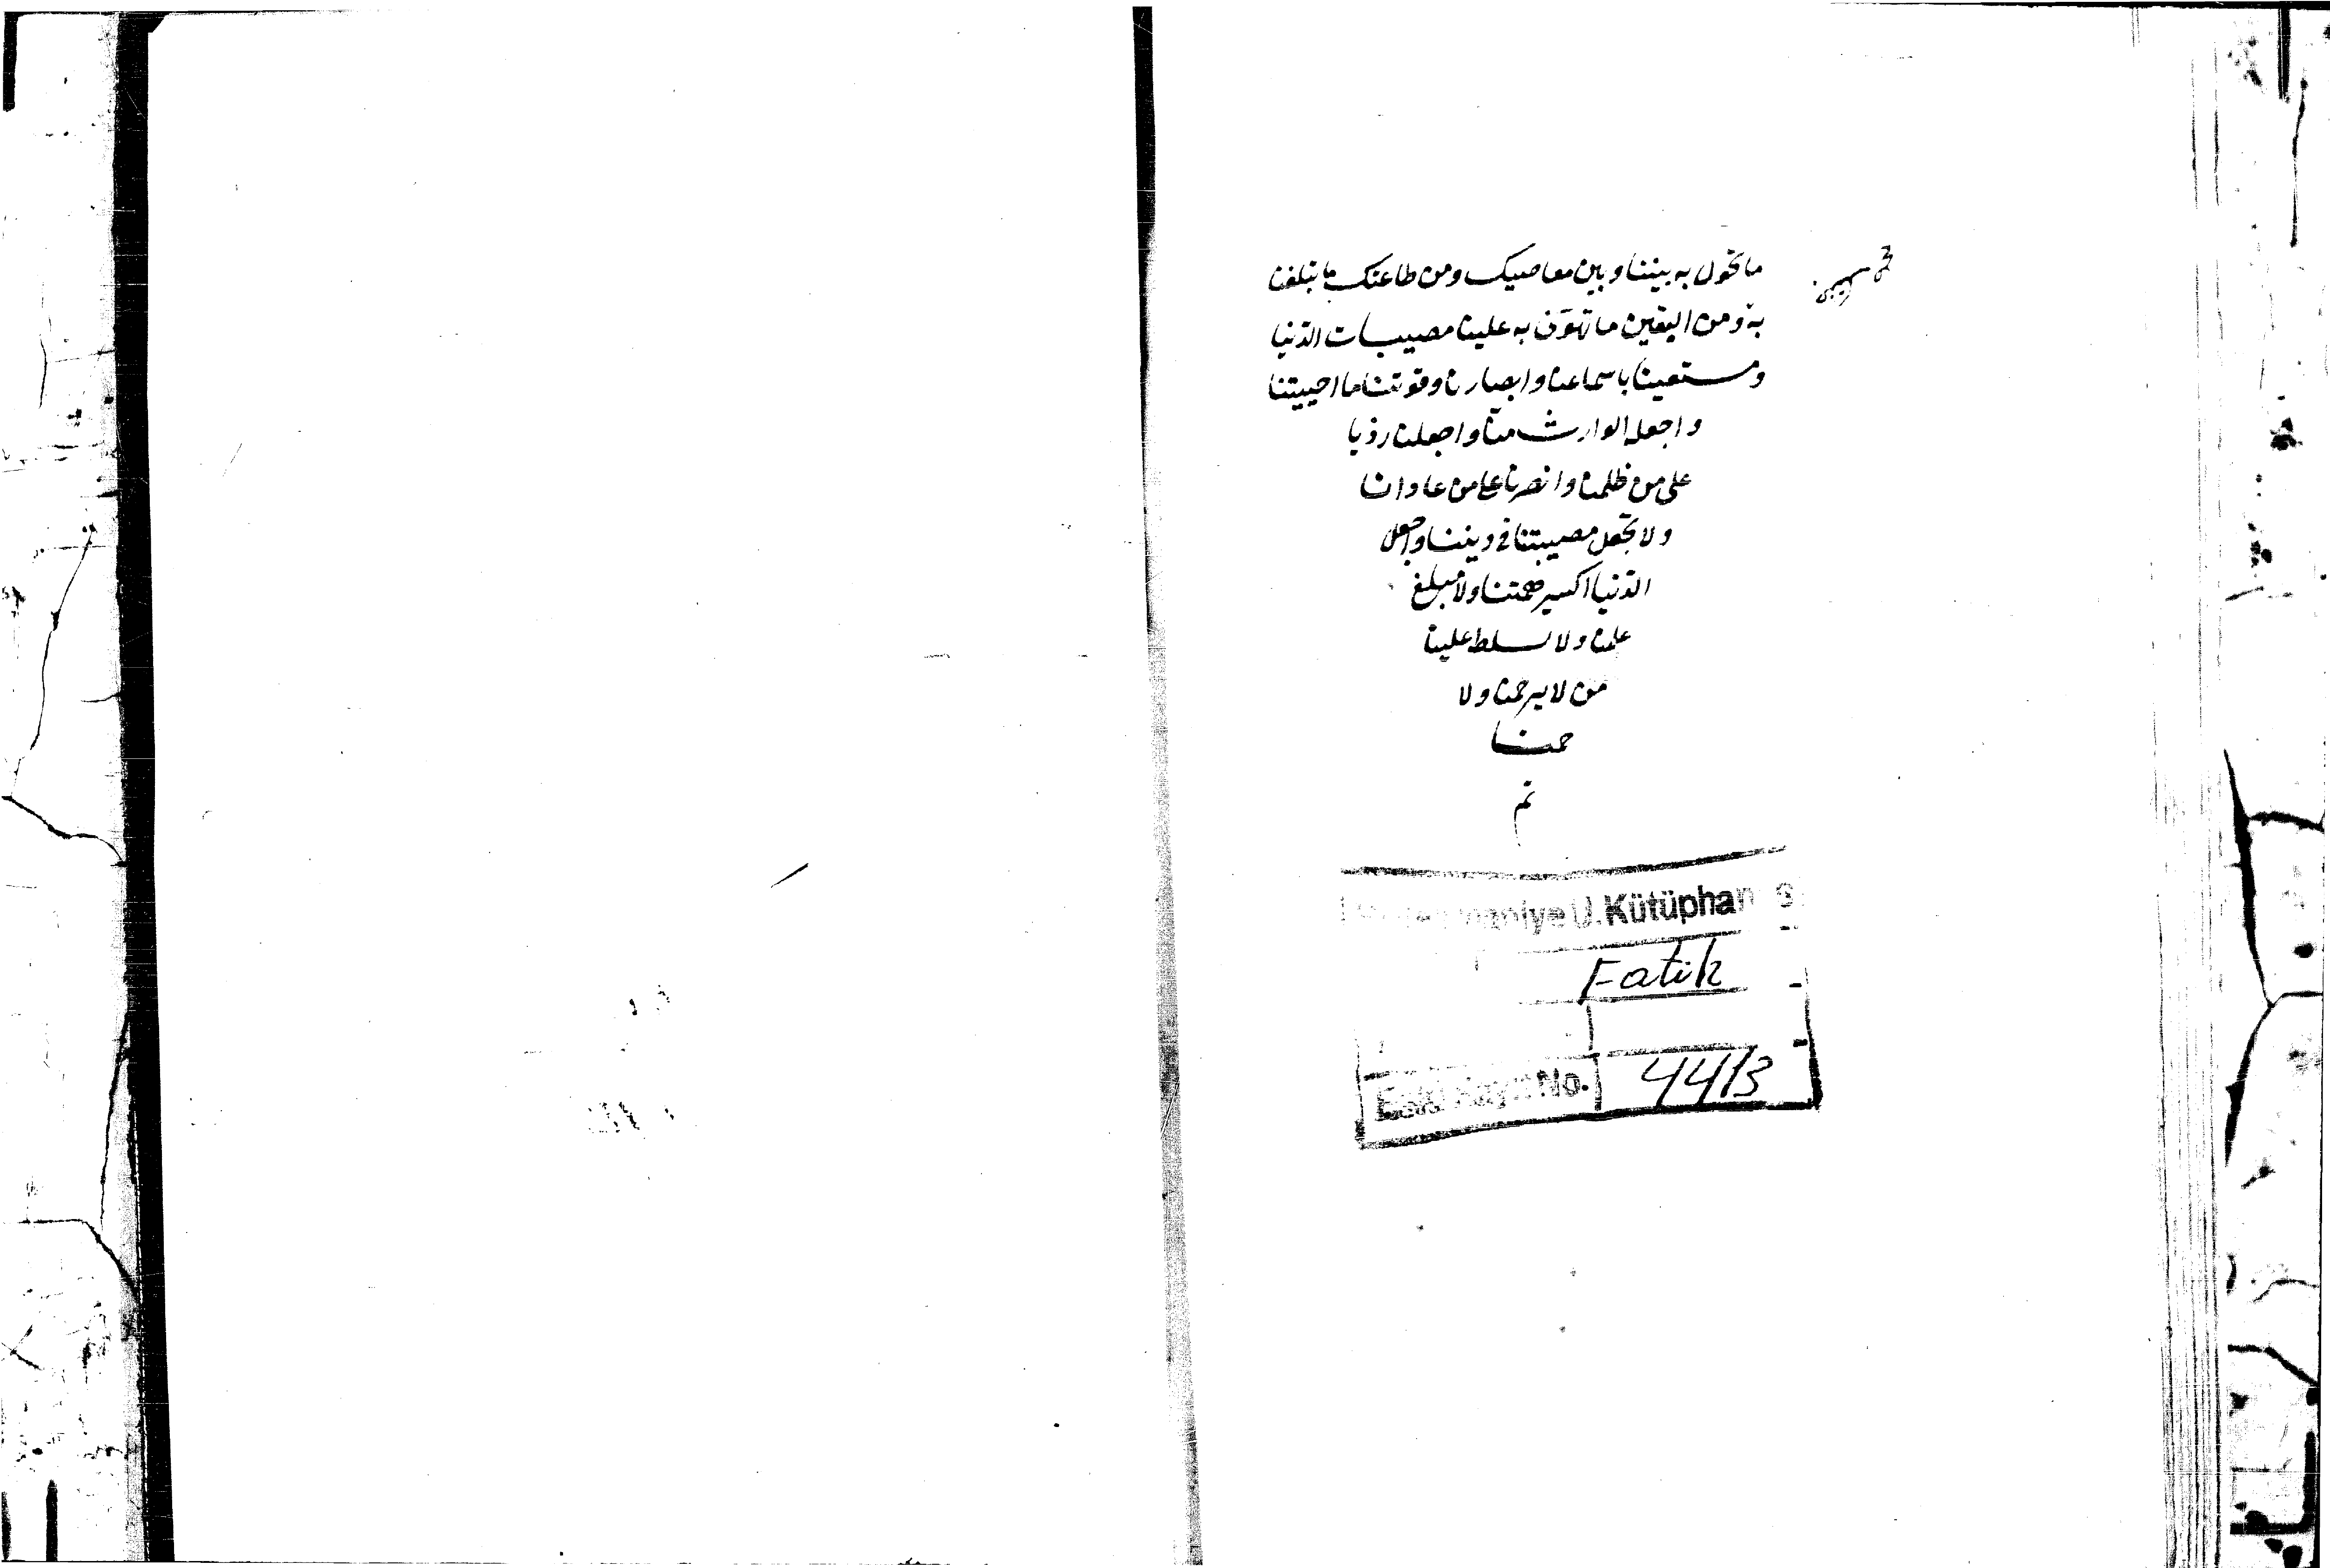 ما تحول به بيننا وبين معاصيك ومن طاعتك ما تبلغنا
به ومن اليقين ما تهون به علينا مصيبات الدنيا
ومستعينا باسماعنا وابصارنا وقوتنا ما احييتنا
واجعله الوارث منا واجعلنا رزيا
على من ظلمنا وانصرنا على من عادانا
ولا تجعل مصيبتنا في ديننا واجعل
الدنيا اكسير همتنا ولا مبلغ
علمنا ولا تسلط علينا
من لا يرحمنا ولا
حمنا
تم
U.Kütüphan
Fatih
No. 4413